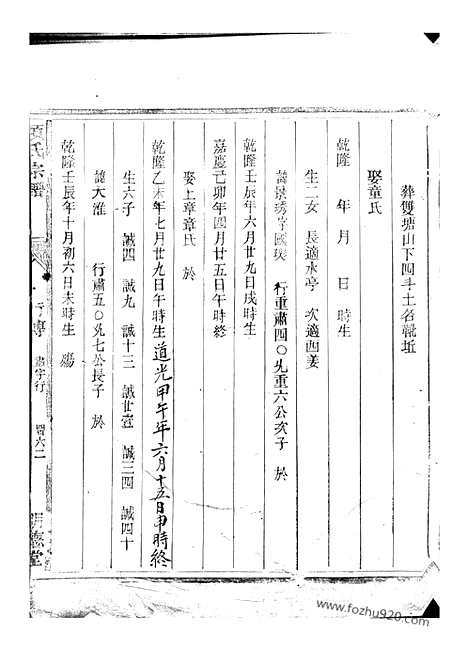 葬雙塘山下四斗土名靴坵
娶童氏
乾隆 年 月 日 時生
生二女 長適水亭 次適四姜
諱景琇字國瑛 行重肅四〇先重六公次子 於
乾隆壬辰年六月廿九日戌時生
嘉慶己卯年四月廿五日午時終
娶上章章氏 於
乾隆乙未年七月廿九日午時生道光甲午年六月十五日申時終
生六子 誠四 誠九 誠十三 誠廿壹 誠三四 誠四十
諱大淮 行肅五〇先七公長子 於
乾隆壬辰年十月初六日未時生 殤
氏宗譜
行傳
肅字行
明德堂
www.fozhu920.com